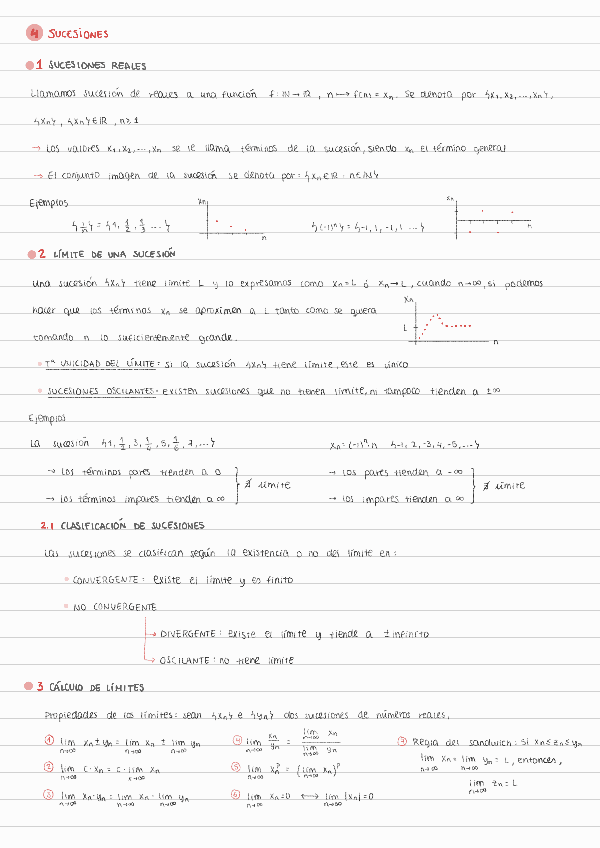 4 SUCESIONES
1 SUCESIONES REALES
Llamamos sucesión de reales a una función f: ℕ → ℝ, n ↦ f(n) = xₙ. Se denota por {x₁, x₂, ..., xₙ},
{xₙ}, {xₙ} ∈ ℝ, n ≥ 1
→ Los valores x₁, x₂, ..., xₙ se le llama términos de la sucesión, siendo xₙ el término general
→ El conjunto imagen de la sucesión se denota por: {xₙ ∈ ℝ : n ∈ ℕ}
Ejemplos
{1/n} = {1, 1/2, 1/3 ...}
xₙ
n
{(-1)ⁿ} = {-1, 1, -1, 1 ...}
xₙ
n
2 LÍMITE DE UNA SUCESIÓN
Una sucesión {xₙ} tiene límite L y lo expresamos como xₙ = L ó xₙ → L, cuando n→∞, si podemos
hacer que los términos xₙ se aproximen a L tanto como se quiera
tomando n lo suficientemente grande.
xₙ
L
n
Tª UNICIDAD DEL LÍMITE: si la sucesión {xₙ} tiene límite, este es único
SUCESIONES OSCILANTES: existen sucesiones que no tienen límite, ni tampoco tienden a ±∞
Ejemplos
La sucesión {1, 1/2, 3, 1/4, 5, 1/6, 7, ...}
→ los términos pares tienden a 0
→ los términos impares tienden a ∞
∄ límite
xₙ = (-1)ⁿ·n {-1, 2, -3, 4, -5, ...}
→ los pares tienden a -∞
→ los impares tienden a ∞
∄ límite
2.1 CLASIFICACIÓN DE SUCESIONES
Las sucesiones se clasifican según la existencia o no del límite en:
CONVERGENTE: existe el límite y es finito
NO CONVERGENTE
→ DIVERGENTE: existe el límite y tiende a ± infinito
→ OSCILANTE: no tiene límite
3 CÁLCULO DE LÍMITES
Propiedades de los límites: sean {xₙ} e {yₙ} dos sucesiones de números reales,
① lim n→∞ xₙ ± yₙ = lim n→∞ xₙ ± lim n→∞ yₙ
② lim n→∞ c·xₙ = c· lim x→∞ xₙ
③ lim n→∞ xₙ·yₙ = lim n→∞ xₙ · lim n→∞ yₙ
④ lim n→∞ xₙ/yₙ = lim n→∞ xₙ / lim n→∞ yₙ
⑤ lim n→∞ xₙᵖ = (lim n→∞ xₙ)ᵖ
⑥ lim n→∞ xₙ = 0 ⟷ lim n→∞ |xₙ| = 0
⑦ Regla del sandwich: Si xₙ ≤ zₙ ≤ yₙ
lim n→∞ xₙ = lim n→∞ yₙ = L, entonces,
lim n→∞ zₙ = L